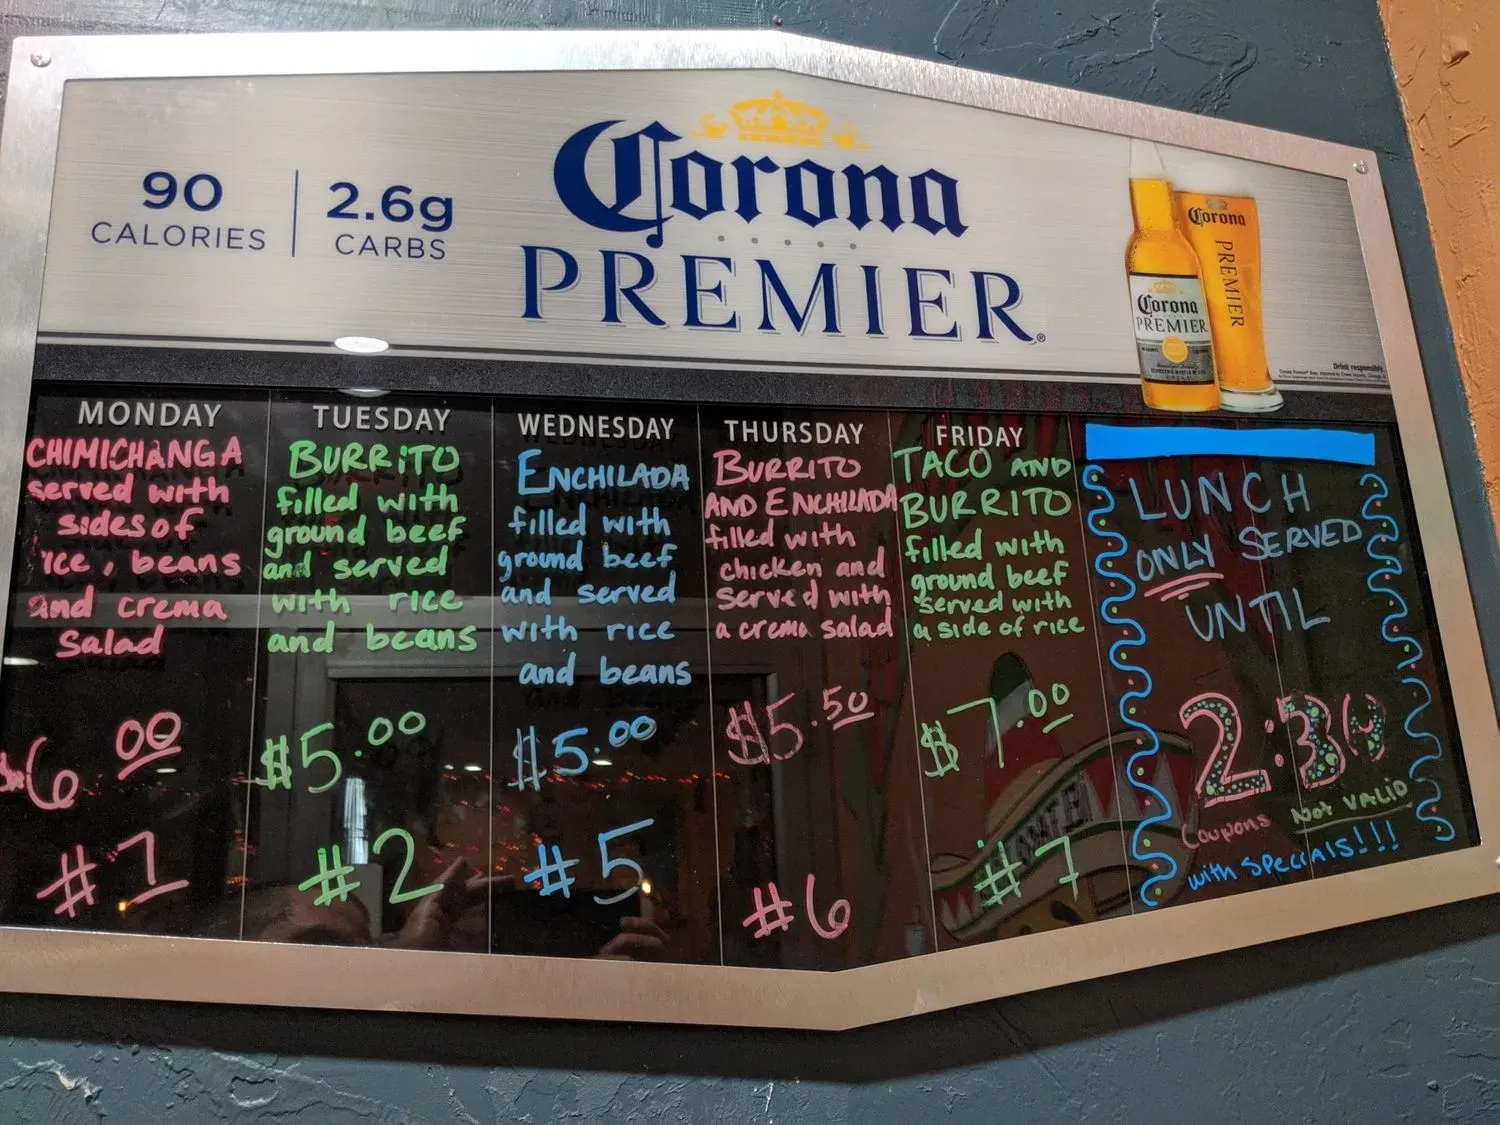 90
CALORIES
2.6g
CARBS
Corona
PREMIER®
Corona
PREMIER
Corona
PREMIER
Drink responsibly.
MONDAY
CHIMICHANGA
served with
sides of
rice, beans
and crema
salad
$6.00
#1
TUESDAY
BURRITO
filled with
ground beef
and served
with rice
and beans
$5.00
#2
WEDNESDAY
ENCHILADA
filled with
ground beef
and served
with rice
and beans
$5.00
#5
THURSDAY
BURRITO
AND ENCHILADA
filled with
chicken and
served with
a crema salad
$5.50
#6
FRIDAY
TACO AND
BURRITO
filled with
ground beef
served with
a side of rice
$7.00
#7
LUNCH
ONLY SERVED
UNTIL
2:30
Coupons Not VALID
with specials!!!